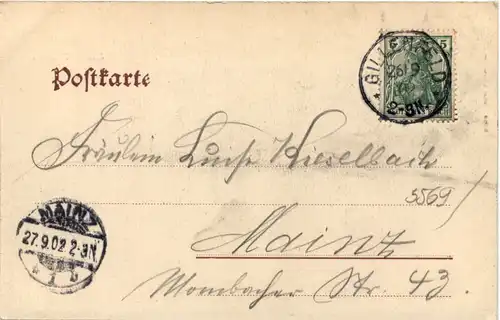 Postkarte
5
GILLENFELD
26 9
2-3N.
Fräulein Luise Kieselbach
5569
MAINZ
27.9.02 2-3N.
1
Mainz
Mombacher Str. 43.